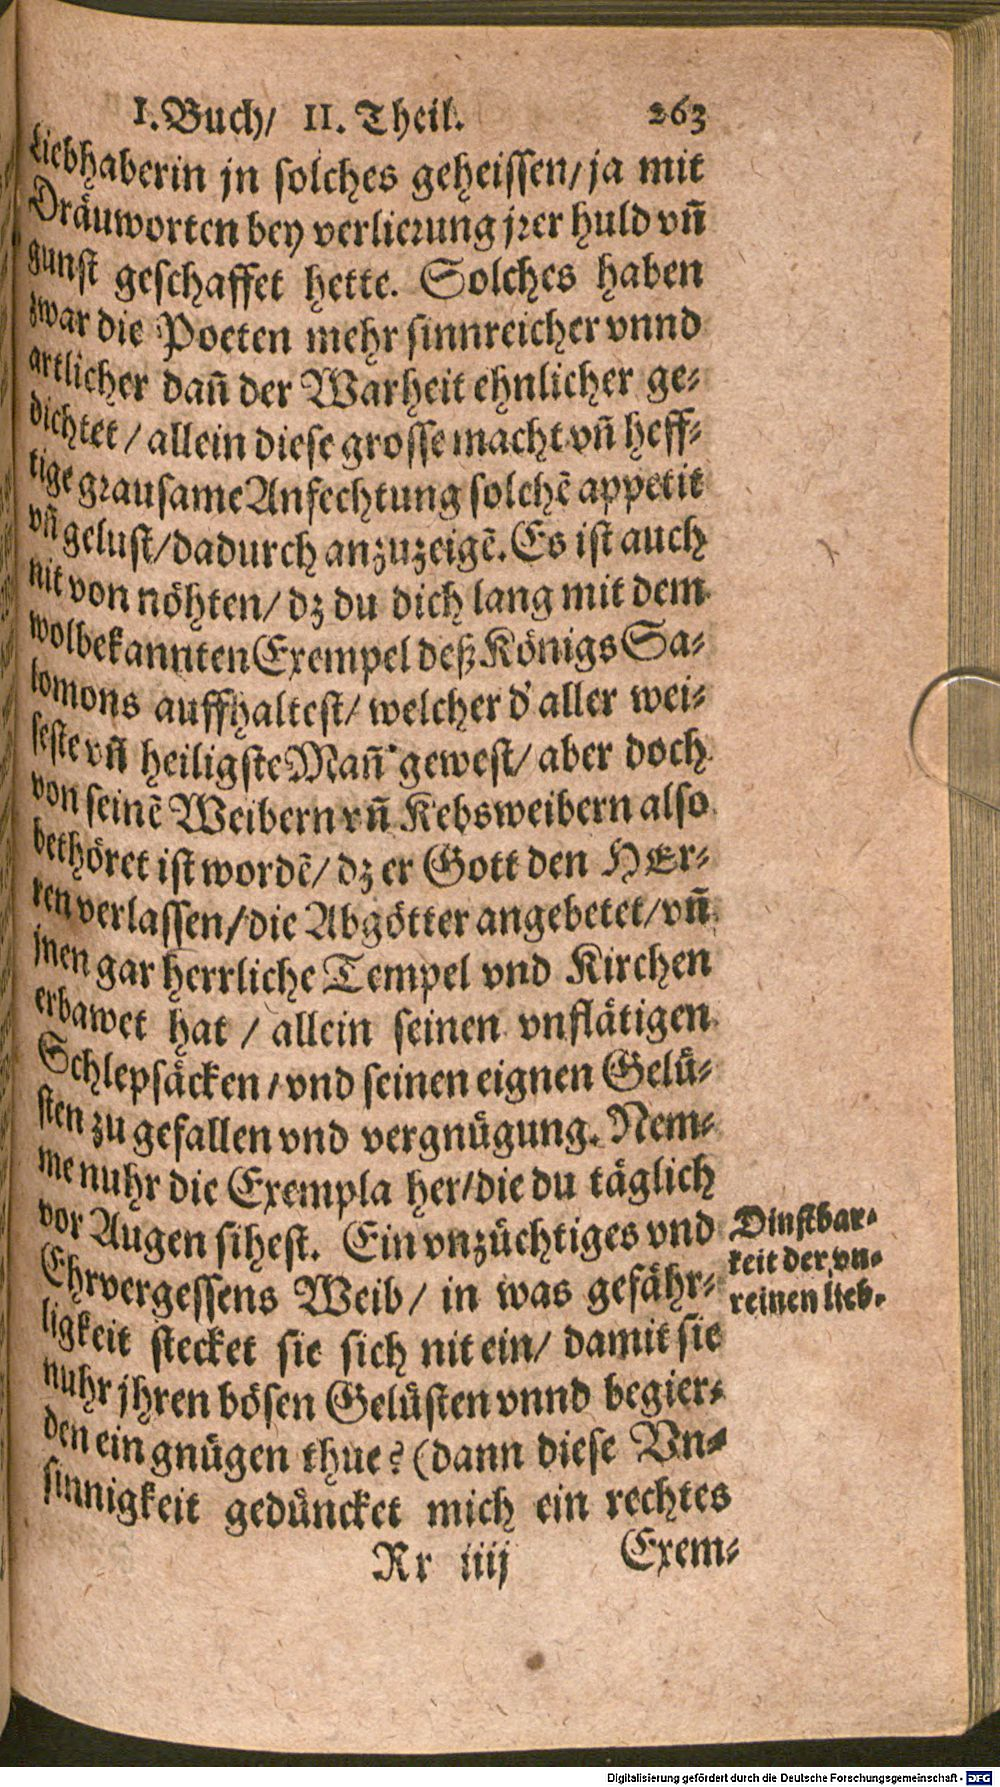 I. Buch/ II. Theil. 263
Liebhaberin jn solches geheissen/ ja mit
Dräuworten bey verlierung jrer huld vn̄
gunst geschaffet hette. Solches haben
zwar die Poeten mehr sinnreicher vnnd
artlicher dan̄ der Warheit ehnlicher ge-
dichtet / allein diese grosse macht vn̄ heff-
tige grausame Anfechtung solchē appetit
vn̄ gelust/ dadurch anzuzeigē. Es ist auch
nit von nöhten/ dz du dich lang mit dem
wolbekannten Exempel deß Königs Sa-
lomons auffhaltest/ welcher d' aller wei-
seste vn̄ heiligste Man̄ gewest/ aber doch
von seinē Weibern vn̄ Kebsweibern also
bethöret ist wordē/ dz er Gott den HEr-
ren verlassen/ die Abgötter angebetet/ vn̄
jnen gar herrliche Tempel vnd Kirchen
erbawet hat / allein seinen vnflätigen
Schlepsäcken / vnd seinen eignen Gelü-
sten zu gefallen vnd vergnügung. Nem-
me nuhr die Exempla her/ die du täglich
vor Augen sihest. Ein vnzüchtiges vnd
Ehrvergessens Weib/ in was gefähr-
ligkeit stecket sie sich nit ein/ damit sie
nuhr jhren bösen Gelüsten vnnd begier-
den ein gnügen thue? (dann diese Vn-
sinnigkeit gedüncket mich ein rechtes
Rr iiij Exem-
Dinstbar-
keit der vn-
reinen lieb.
Digitalisierung gefördert durch die Deutsche Forschungsgemeinschaft - DFG